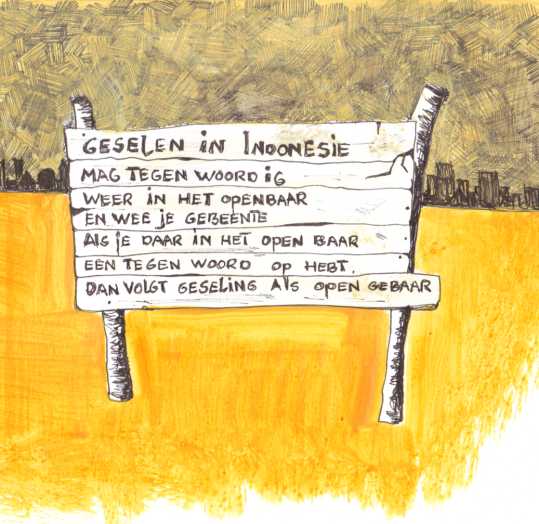 GESELEN IN INDONESIE
MAG TEGEN WOORD iG
WEER IN HET OPENBAAR
EN WEE JE GEBEENTE
ALS JE DAAR IN HET OPEN BAAR
EEN TEGEN WOORD OP HEBT,
DAN VOLGT GESELING ALS OPEN GEBAAR